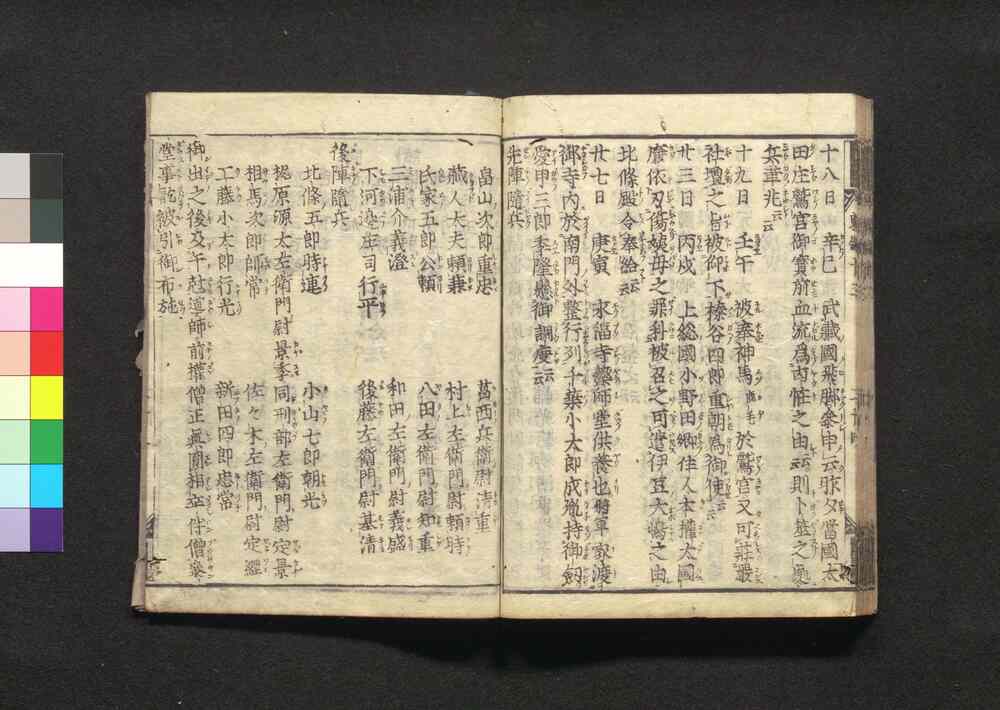 十八日　辛巳　武藏國飛脚參申云昨夕當國太
田庄鷲宮御寳前血流爲凶恠之由云云則卜筮之處
兵革兆云云
十九日　壬午　被奉神馬鹿毛於鷲宮又可莊嚴
社壇之旨被仰下榛谷四郎重朝爲御使云云
廿三日　丙戌　上総國小野田郷住人本權太國
廉依刃傷嬪母之罪科被召之可遣伊豆大嶋之由
北條殿令奉給云云
廿七日　庚寅　永福寺藥師堂供養也將軍家渡
御寺内於南門外整行列千葉小太郎成胤持御劔
愛甲三郎季隆懸御調度云云
先陣隨兵
畠山次郎重忠　葛西兵衛尉清重
藏人大夫頼兼　村上左衛門尉頼時
氏家五郎公頼　八田左衛門尉知重
三浦介義澄　和田左衛門尉義盛
下河邊庄司行平　後藤左衛門尉基清
後陣隨兵
北條五郎時連　小山七郎朝光
梶原源太左衛門尉景季　同刑部左衛門尉定景
相馬次郎師常　佐々木左衛門尉定經
工藤小太郎行光　新田四郎忠常
御出之後及午尅導師前權僧正眞圓相逹伴僧衆
堂事訖被引御布施